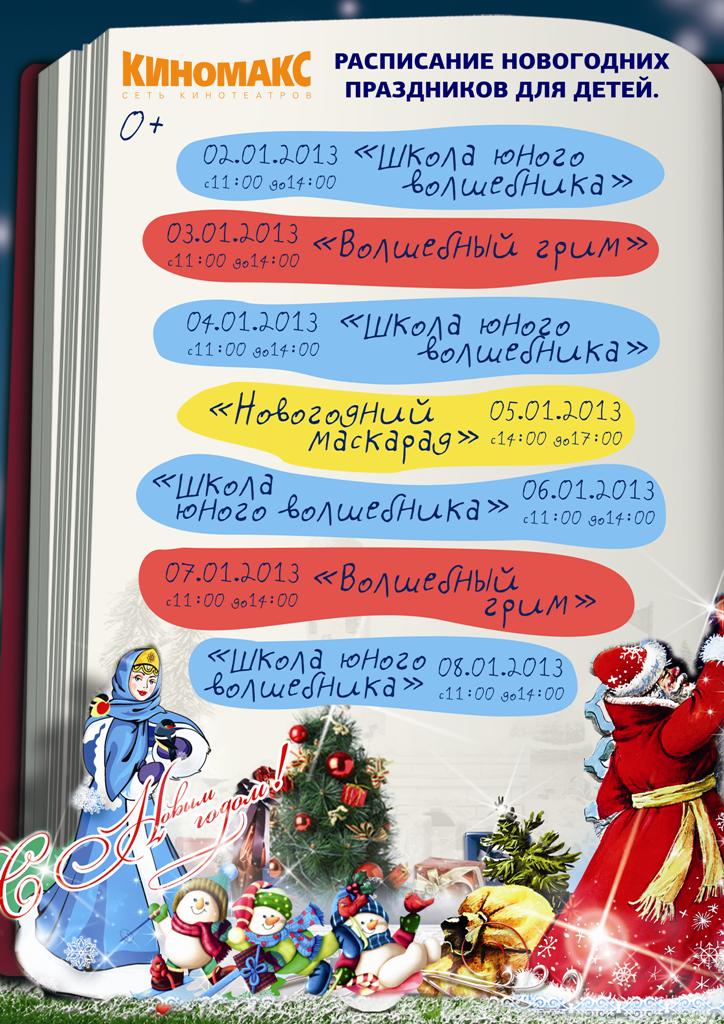 КИНОМАКС
СЕТЬ КИНОТЕАТРОВ
РАСПИСАНИЕ НОВОГОДНИХ
ПРАЗДНИКОВ ДЛЯ ДЕТЕЙ.
0+
02.01.2013 «Школа юного
с11:00 до14:00 волшебника»
03.01.2013 «Волшебный грим»
с11:00 до14:00
04.01.2013 «Школа юного
с11:00 до14:00 волшебника»
«Новогодний 05.01.2013
маскарад» с14:00 до17:00
«Школа 06.01.2013
юного волшебника» с11:00 до14:00
07.01.2013 «Волшебный
с11:00 до14:00 грим»
«Школа юного 08.01.2013
волшебника» с11:00 до14:00
С Новым
годом!